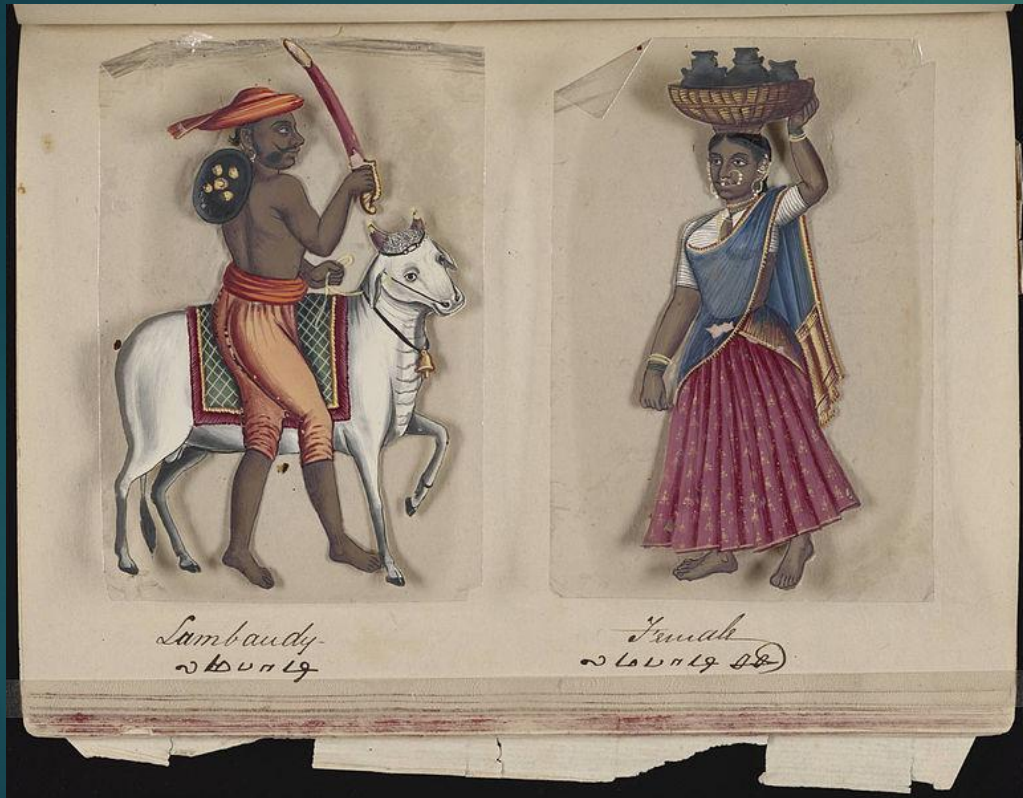 Lambaudy
லம்பாடி
Female
லம்பாடி